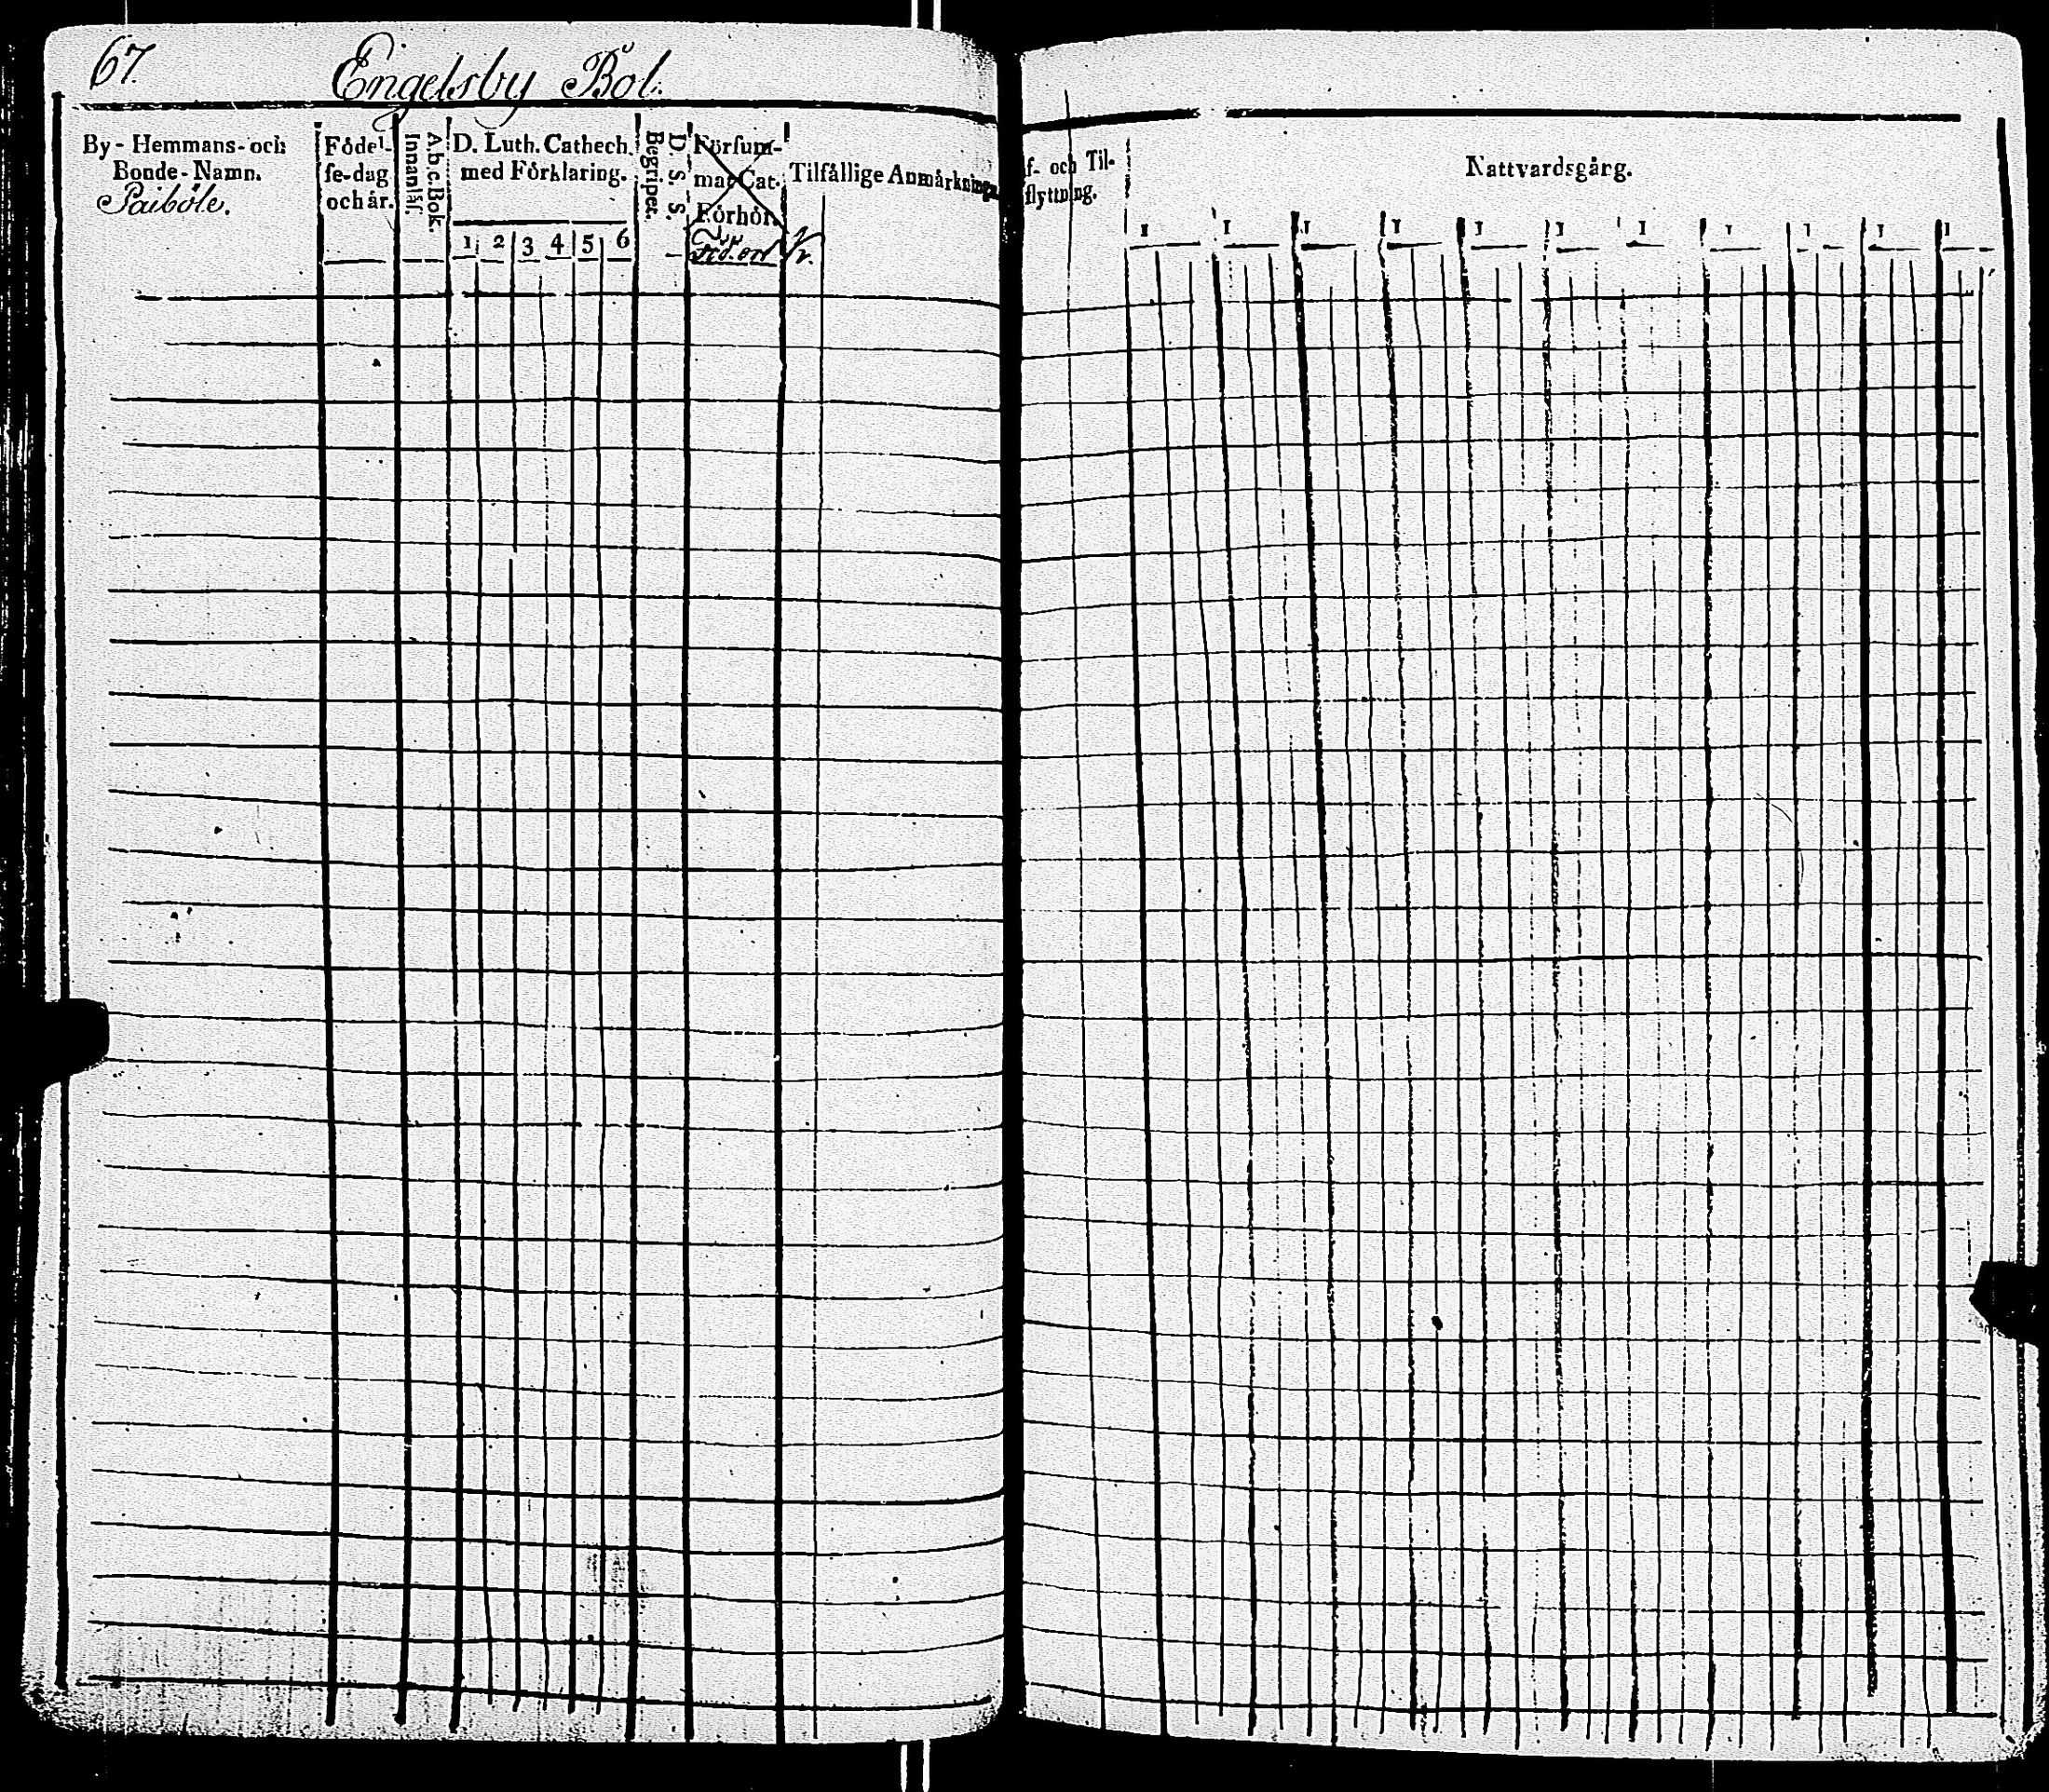 67.
Engelsby Bol.
By-Hemmans-och
Bonde-Namn.
Paiböle.
Födel-
se-dag
och år.
Abc.Bok.
Innanläs.
D. Luth. Cathech.
med Förklaring.
1 2 3 4 5 6
D. S. S.
Begriper.
Försum-
mat Cat.
Förhör.
Tilfällige Anmärkning
f- och Til-
flyttning.
Nattvardsgång.
1 1 1 1 1 1 1 1 1 1 1